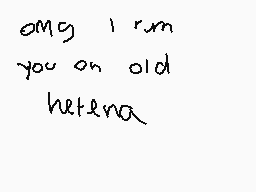 omg i rm
you on old
hetena